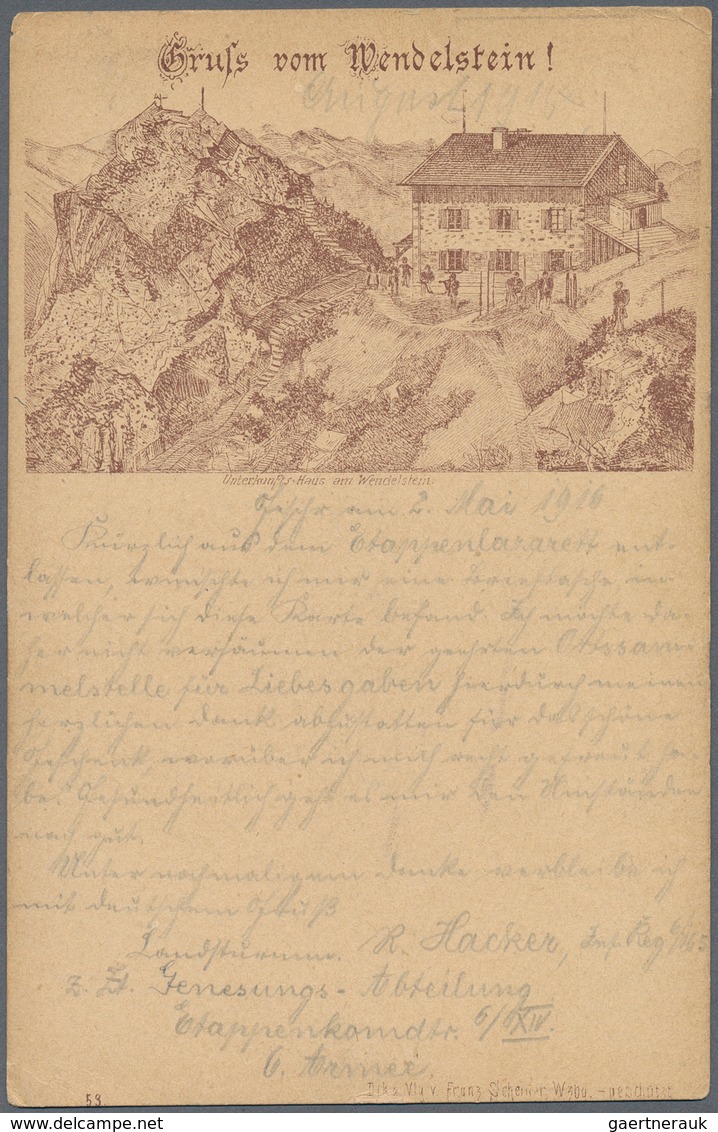 Gruss vom Wendelstein!
August 191
Unterkunfts-Haus am Wendelstein.
am 2. Mai 1916
Kürzlich aus dem Etappenlazarett ent-
lassen, wünschte ich mir eine Brieftasche in
welcher sich diese Karte befand. Ich möchte da-
her nicht versäumen der geehrten Ortssam-
melstelle für Liebesgaben hierdurch meinen
herzlichen Dank abzustatten für das schöne
Geschenk, worüber ich mich recht gefreut ha-
be. Gesundheitlich geht es mir den Umständen
nach gut.
Unter nochmaligem Danke verbleibe ich
mit deutschem Gruß
Landsturmm. R. Hacker, Inf. Reg.
z. Zt. Genesungs-Abteilung
Etappenkomdtr. 6/XIV.
6. Armee.
53 Dr. & Vlg. v. Franz Schemm, Wzbg. - geschützt